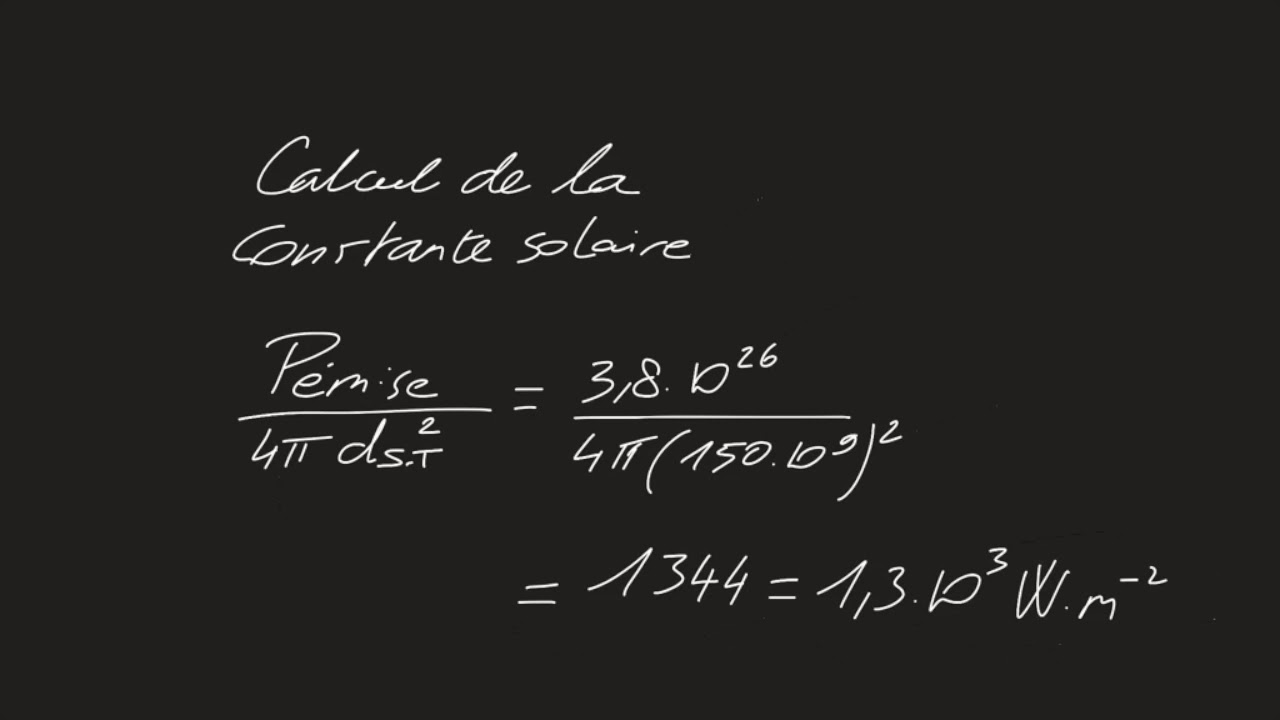 Calcul de la
Constante solaire
Pémise / 4π dS.T² = 3,8.10²⁶ / 4π(150.10⁹)²
= 1344 = 1,3.10³ W.m⁻²